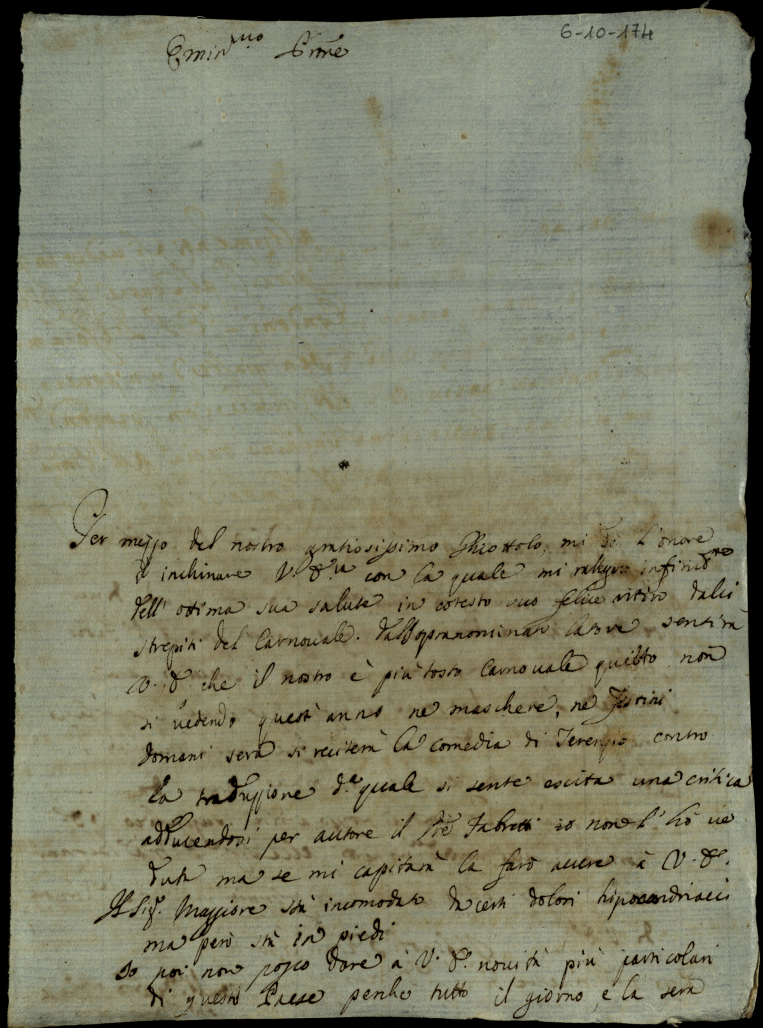 6-10-174
Emin.mo Prine
Per mezzo del nostro gratiosissimo mi dò l'onore
d'inchinare V. E.za con la quale mi rallegro infinite
dell'ottima sua salute in cotesto suo felice ritiro dalli
strepiti del Carnouale. Dal sopranominato sentirà
V. E. che il nostro è più tosto Carnouale quieto non
si uedendo quest'anno ne maschere, ne festini
domani sera si reciterà la comedia di Terenzio contro
la traduzzione d.a quale si sente escita una critica
adducendosi per autore il Fabretti io non l'hò ue
duta ma se mi capitarà la farò auere à V. E.
Il Sig.r Maggiore stà incomodato da certi dolori hipocondriaci
ma però stà in piedi
Io poi non posso dare à V. E. nouità più particolari
di questo Paese perche tutto il giorno, e la sera